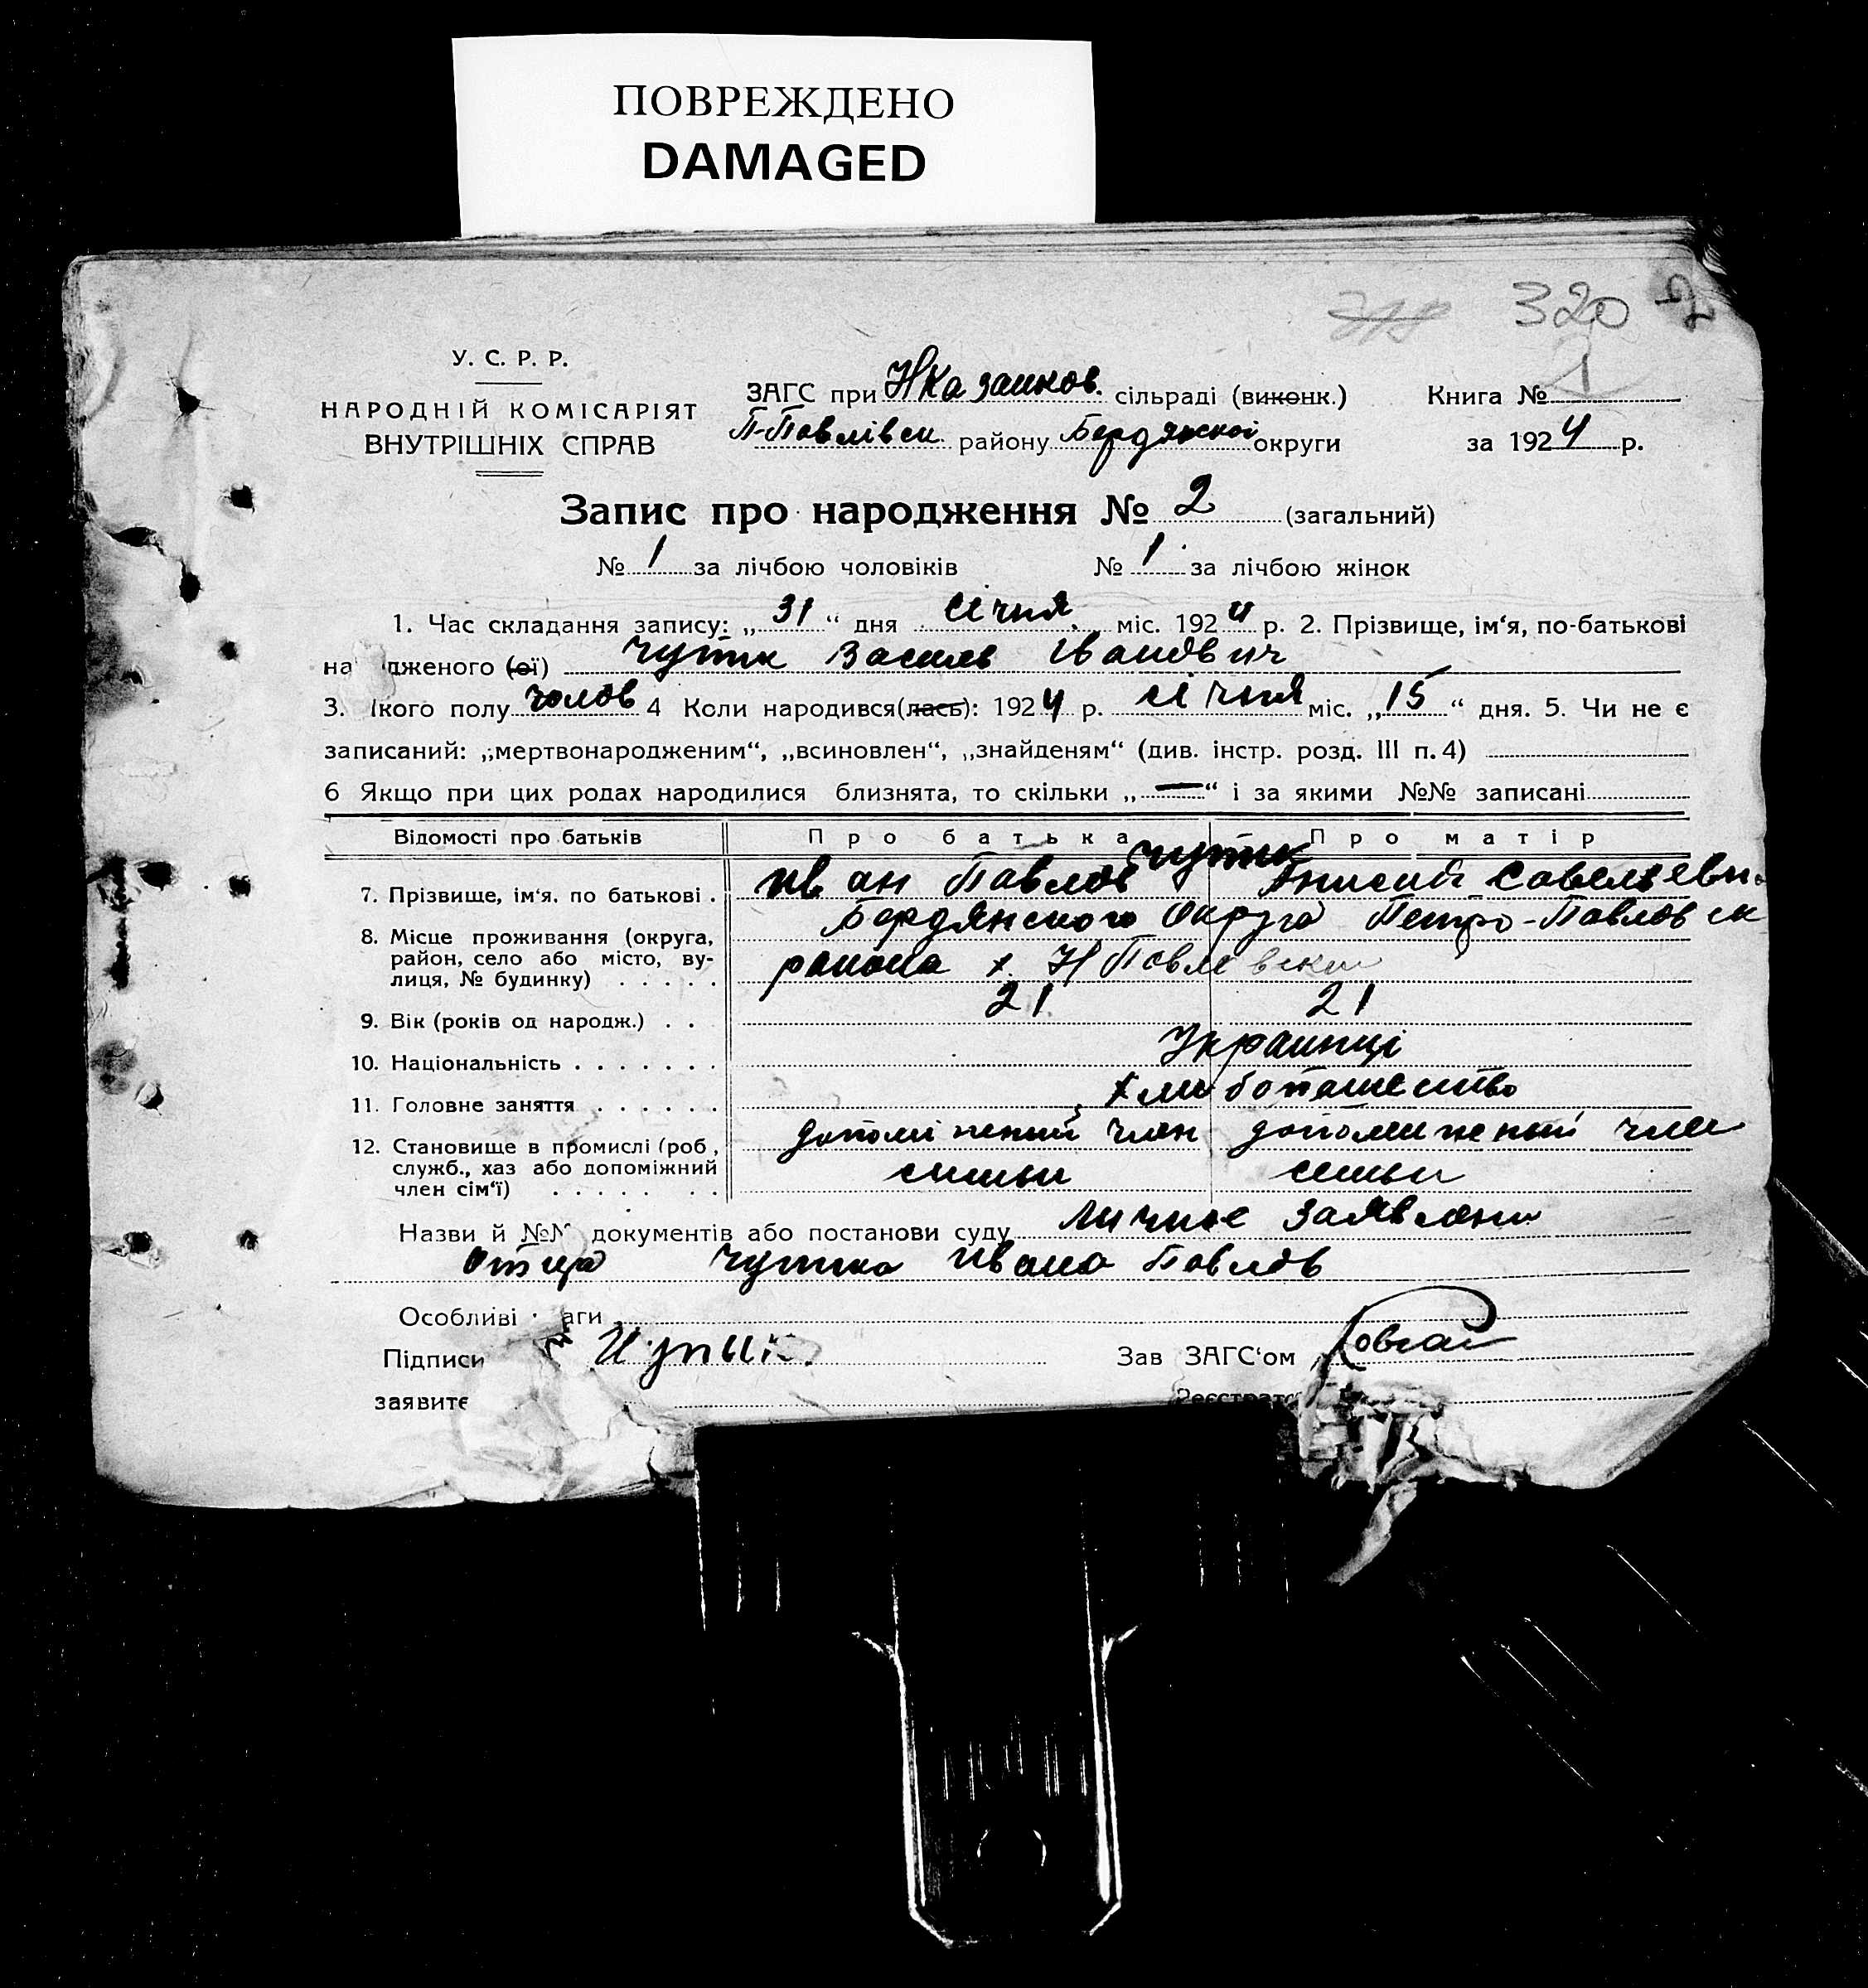 ПОВРЕЖДЕНО
DAMAGED
320 2
1
У. С. Р. Р.
НАРОДНІЙ КОМІСАРІЯТ
ВНУТРІШНІХ СПРАВ
ЗАГС при сільраді (виконк.) Книга №
П-Павлівск. району Бердянской округи за 1924 р.
Запис про народження № 2 (загальний)
№ 1 за лічбою чоловіків № 1 за лічбою жінок
1. Час складання запису: „31“ дня січня міс. 1924 р. 2. Прізвище, ім‘я, по-батькові
на дженого (ої) Чутк Василь Іванович
3. кого полу чолов 4 Коли народився(лась): 1924 р. січня міс. „15“ дня. 5. Чи не є
записаний: „мертвонародженим“, „всиновлен“, „знайденям“ (див. інстр. розд. III п. 4)
6 Якщо при цих родах народилися близнята, то скільки „—“ і за якими №№ записані
Відомості про батьків Про батька Про матір
7. Прізвище, ім‘я, по батькові . Иван Павлов Чутк Анисия Савельевн
8. Місце проживання (округа, район, село або місто, вулиця, № будинку) Бердянского Округа Петро-Павловск
района х. Н Павловски
9. Вік (років од народж.) . . 21 21
10. Національність . . . . . . . Украинці
11. Головне заняття . . . . . . Хлиборашество
12. Становище в промислі (роб, служб., хаз або допоміжний член сім‘ї) допоміжный член допоміжный член
семьи семьи
Назви й №№ документів або постанови суду Личное заявлени
Отца Чутка Ивана Павлов
Особливі аги
Підписи Зав ЗАГС‘ом
заявите Реєстрато